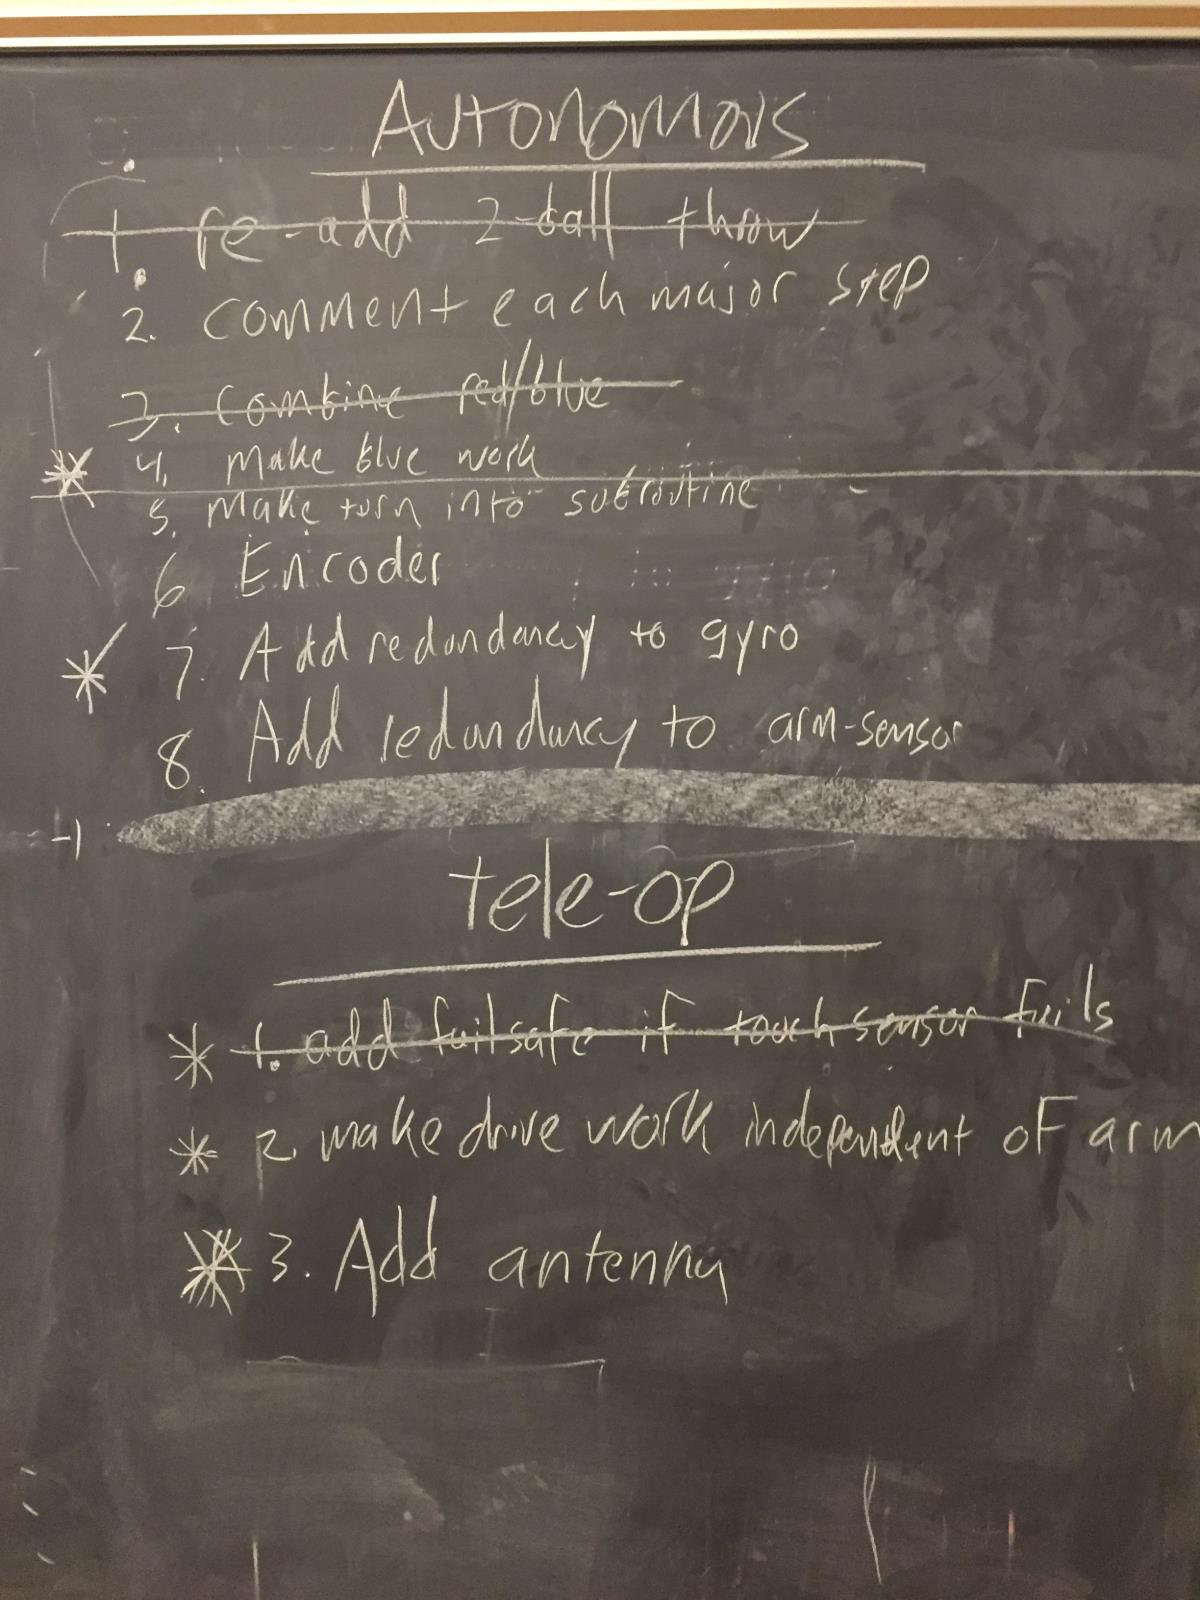 Autonomous
1. re-add 2-ball throw
2. comment each major step
3. Combine red/blue
* 4. Make blue work
5. Make turn into subroutine
6 Encoder
* 7. Add redundancy to gyro
8. Add redundancy to arm-sensor
-1
tele-op
* 1. add failsafe if touch sensor fails
* 2. make drive work independent of arm
* 3. Add antenna